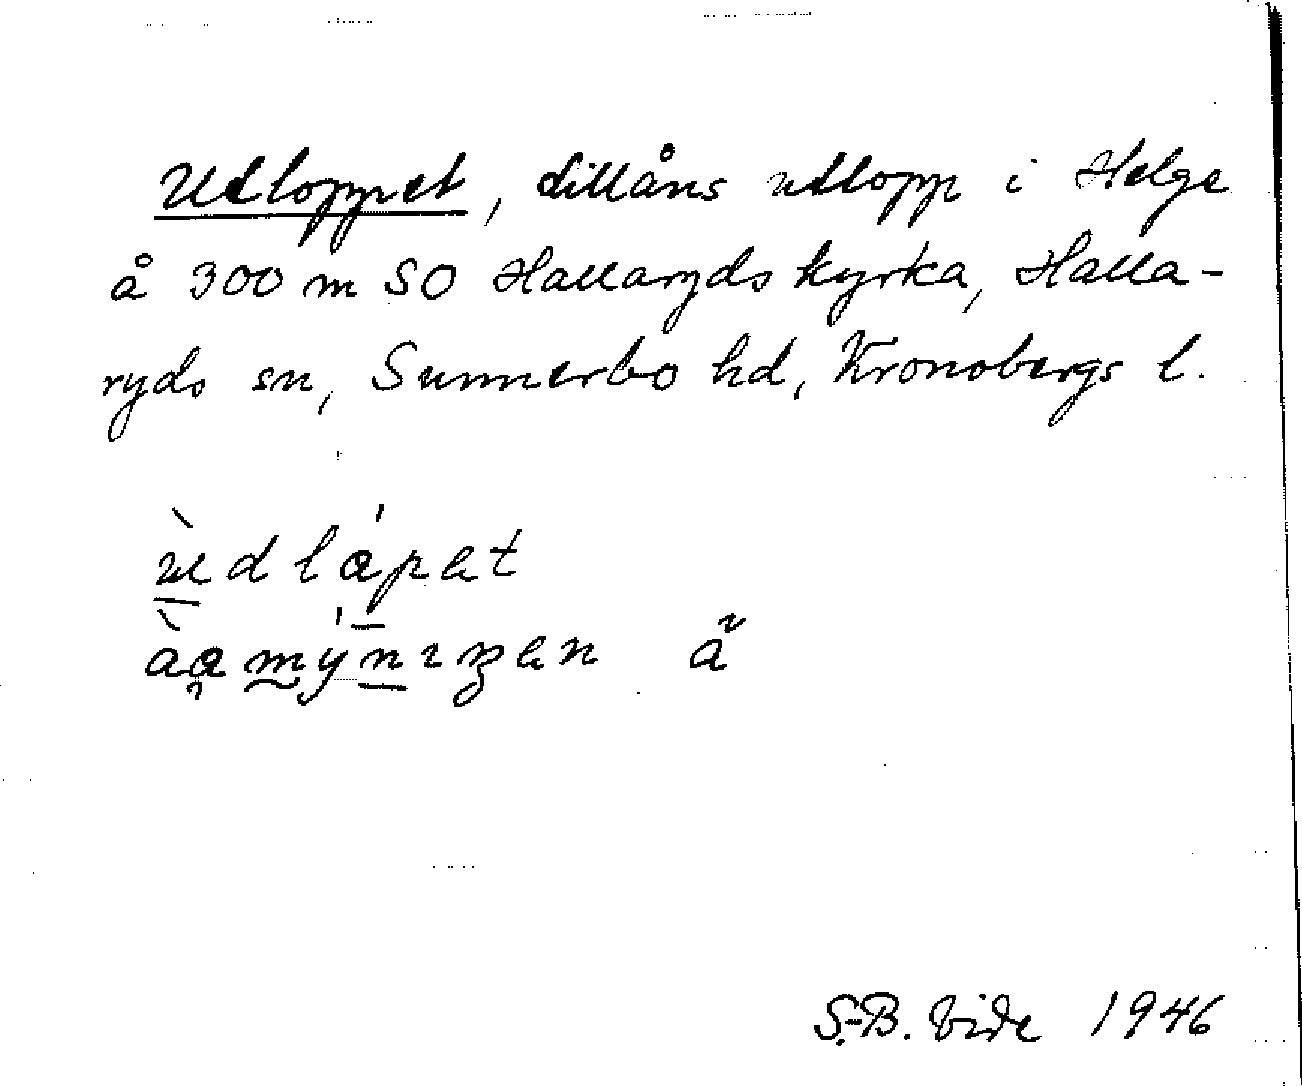 Utloppet, Lillåns utlopp i Helge
å 300 m SO Hallaryds kyrka, Halla-
ryds sn, Sunnerbo hd, Kronobergs l.
S.-B. Vide 1946